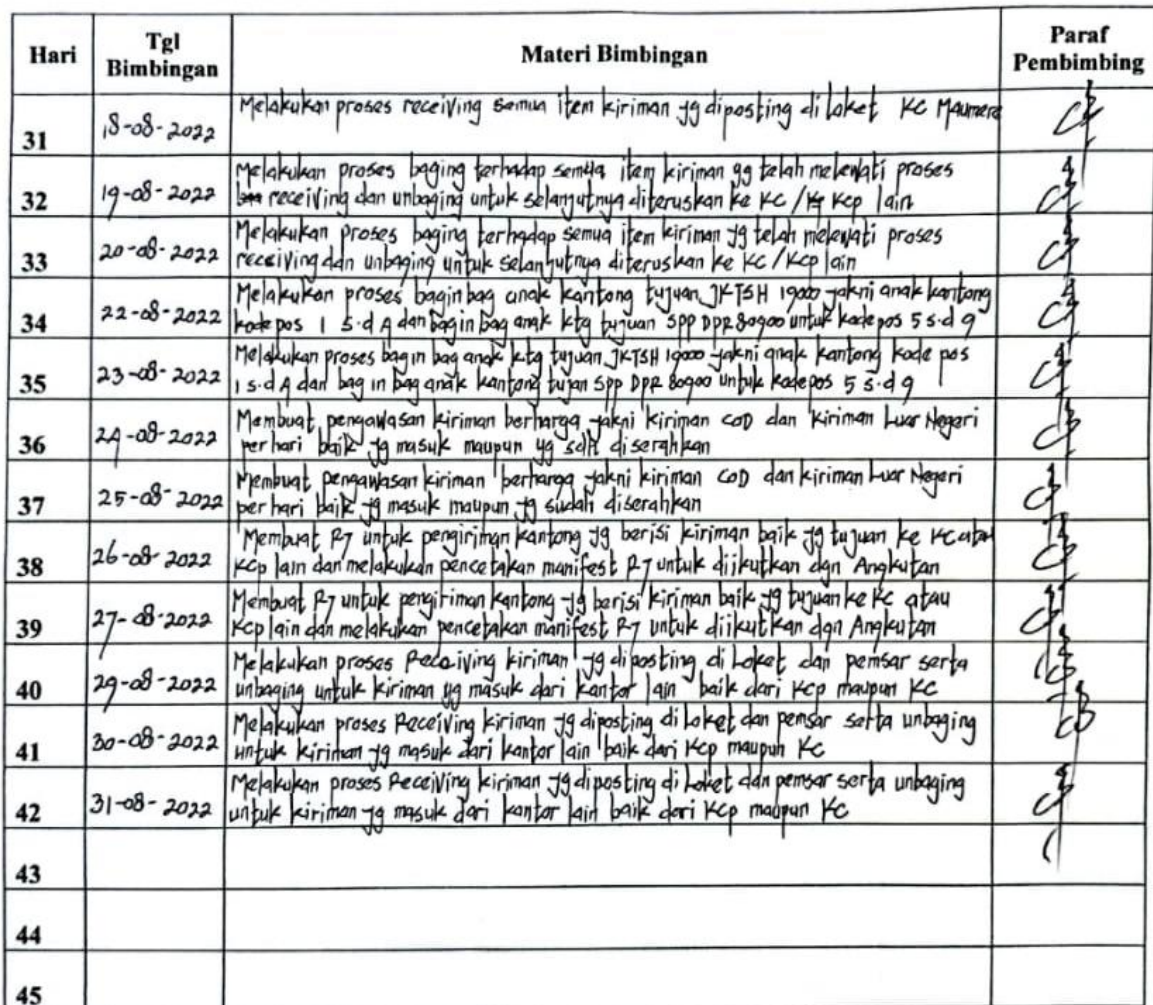 Hari Tgl Bimbingan Materi Bimbingan Paraf Pembimbing
31 18-08-2022 Melakukan proses receiving semua item kiriman yg diposting di Loket KC Maumere
32 19-08-2022 Melakukan proses baging terhadap semua item kiriman yg telah melewati proses
receiving dan unbaging untuk selanjutnya diteruskan ke KC / Kcp lain
33 20-08-2022 Melakukan proses baging terhadap semua item kiriman yg telah melewati proses
receiving dan unbaging untuk selanjutnya diteruskan ke KC / Kcp lain
34 22-08-2022 Melakukan proses bagin bag anak kantong tujuan JKTSH 19000 yakni anak kantong
kode pos 1 s.d 4 dan bagin bag anak ktg tujuan SPP DPR 80900 untuk kodepos 5 s.d 9
35 23-08-2022 Melakukan proses bagin bag anak ktg tujuan JKTSH 19000 yakni anak kantong kode pos
1 s.d 4 dan bag in bag anak kantong tujan SPP DPR 80900 untuk kodepos 5 s.d 9
36 24-08-2022 Membuat pengawasan kiriman berharga yakni kiriman COD dan kiriman Luar Negeri
per hari baik yg masuk maupun yg sdh diserahkan
37 25-08-2022 Membuat pengawasan kiriman berharga yakni kiriman COD dan kiriman Luar Negeri
per hari baik yg masuk maupun yg sudah diserahkan
38 26-08-2022 Membuat R7 untuk pengiriman kantong yg berisi kiriman baik yg tujuan ke KC atau
Kcp lain dan melakukan pencetakan manifest R7 untuk diikutkan dgn Angkutan
39 27-08-2022 Membuat R7 untuk pengiriman kantong yg berisi kiriman baik yg tujuan ke KC atau
Kcp lain dan melakukan pencetakan manifest R7 untuk diikutkan dgn Angkutan
40 29-08-2022 Melakukan proses Receiving kiriman yg diposting di Loket dan pemsar serta
unbaging untuk kiriman yg masuk dari kantor lain baik dari Kcp maupun KC
41 30-08-2022 Melakukan proses Receiving kiriman yg diposting di Loket dan pemsar serta unbaging
untuk kiriman yg masuk dari kantor lain baik dari Kcp maupun KC
42 31-08-2022 Melakukan proses Receiving kiriman yg diposting di Loket dan pemsar serta unbaging
untuk kiriman yg masuk dari kantor lain baik dari Kcp maupun KC
43
44
45